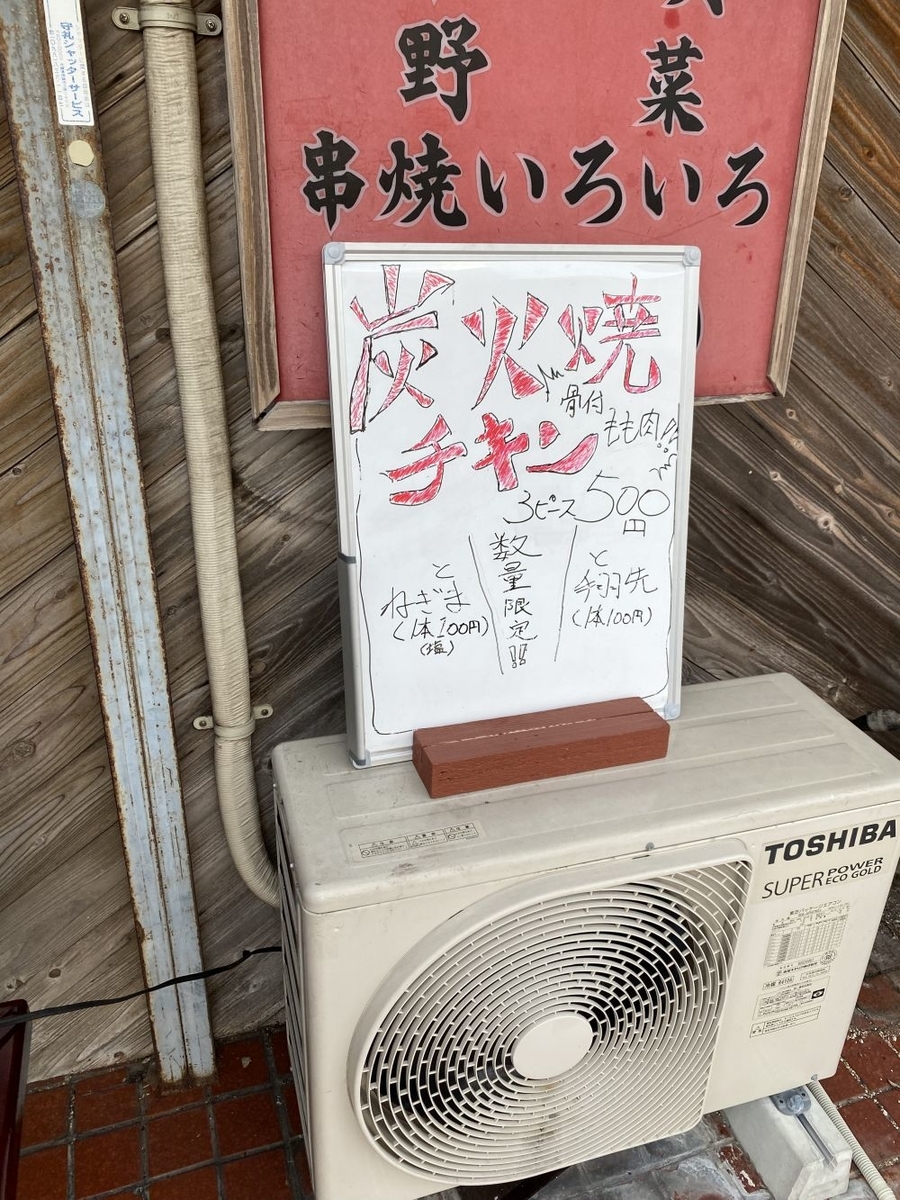 守礼シャッターサービス
野
菜
串焼いろいろ
炭火焼
骨付
もも肉!!
チキン
3ピース500円
数量限定!!
と
ねぎま
(1本100円)
(塩)
と
手羽先
(1本100円)
TOSHIBA
SUPER POWER ECO GOLD